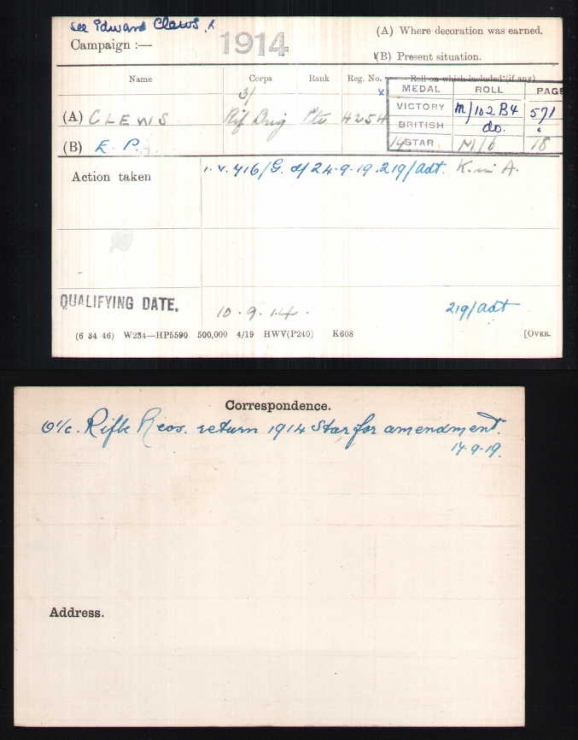 see Edward Claws.
Campaign :— 1914
(A) Where decoration was earned.
(B) Present situation.
Name Corps Rank Reg. No. Roll on which included (if any)
MEDAL ROLL PAGE
3/
(A) CLEWS Rif Brig Pte 4254
VICTORY M/102B4 571
BRITISH do. "
(B) E. P.
14 STAR M/6 18
Action taken 1.V.416/G. d/24.9.19.219/adt. K. in A.
QUALIFYING DATE. 10.9.14. 219/adt
(6 34 46) W234—HP5590 500,000 4/19 HWV(P240) K608 [OVER.
Correspondence.
O i/c. Rifle Recos. return 1914 Star for amendment.
17.9.19.
Address.